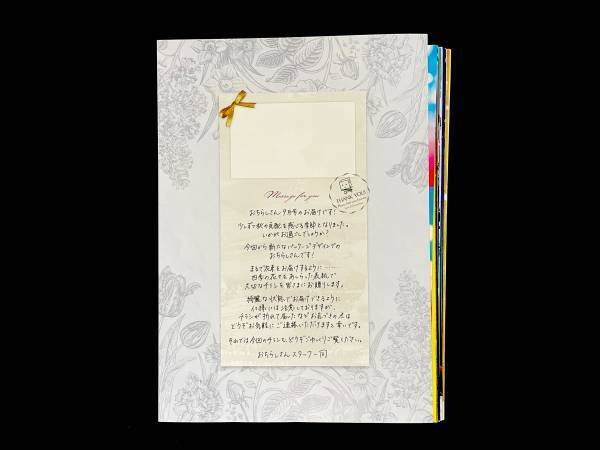 Message for you
THANK YOU!
おちらしさん 9月号のお届けです!
少しずつ秋の気配を感じる季節となりました。
いかがお過ごしでしょうか?
今回から新たなパッケージデザインでの
おちらしさんです!
まるで花束をお届けするように……
四季の花々をあしらった表紙で
大切なチラシを皆さまにお贈りします。
綺麗な状態でお届けできるように
仕様には注意しておりますが、
チラシが折れて届いたなどお気づきの点は
どうぞお気軽にご連絡いただけますと幸いです。
それでは今回のチラシも、どうぞごゆっくりご覧ください。
おちらしさん スタッフ一同